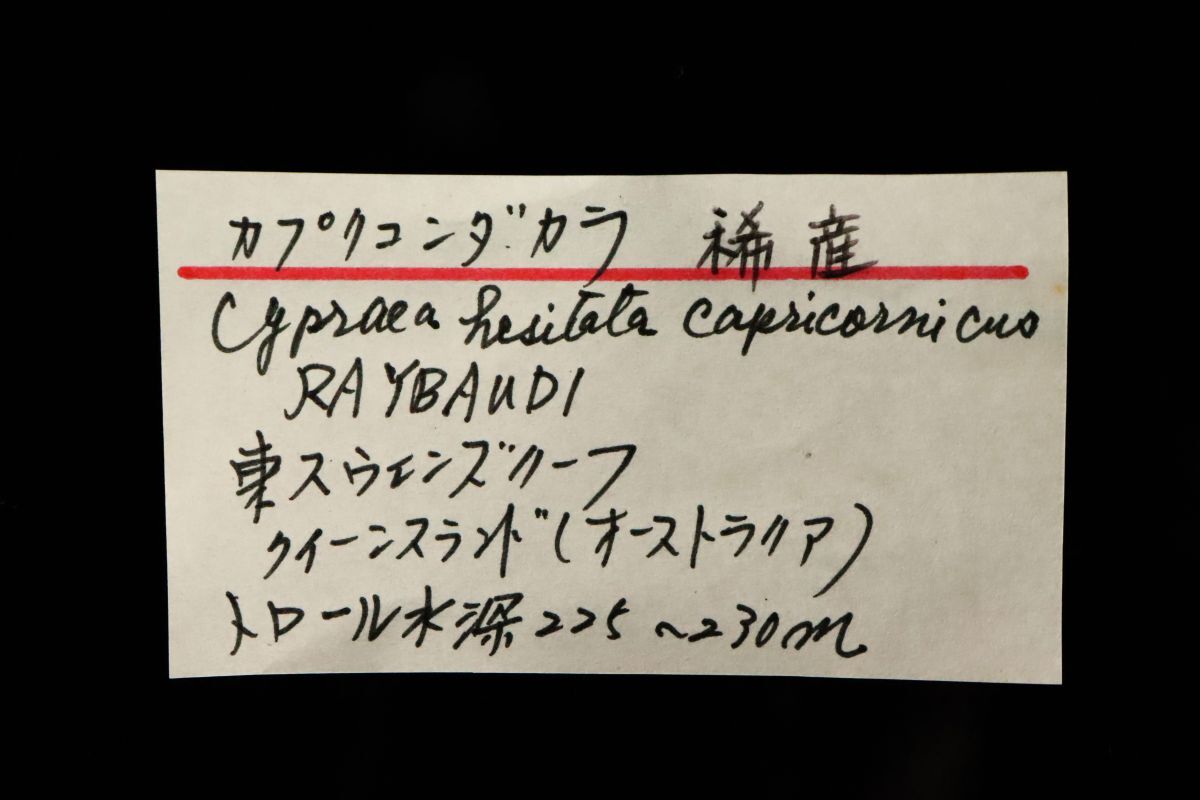 カプリコンダカラ 稀産
Cypraea hesitata capricornicus
RAYBAUDI
東スウェンズリーフ
クイーンスランド(オーストラリア)
トロール水深225~230m